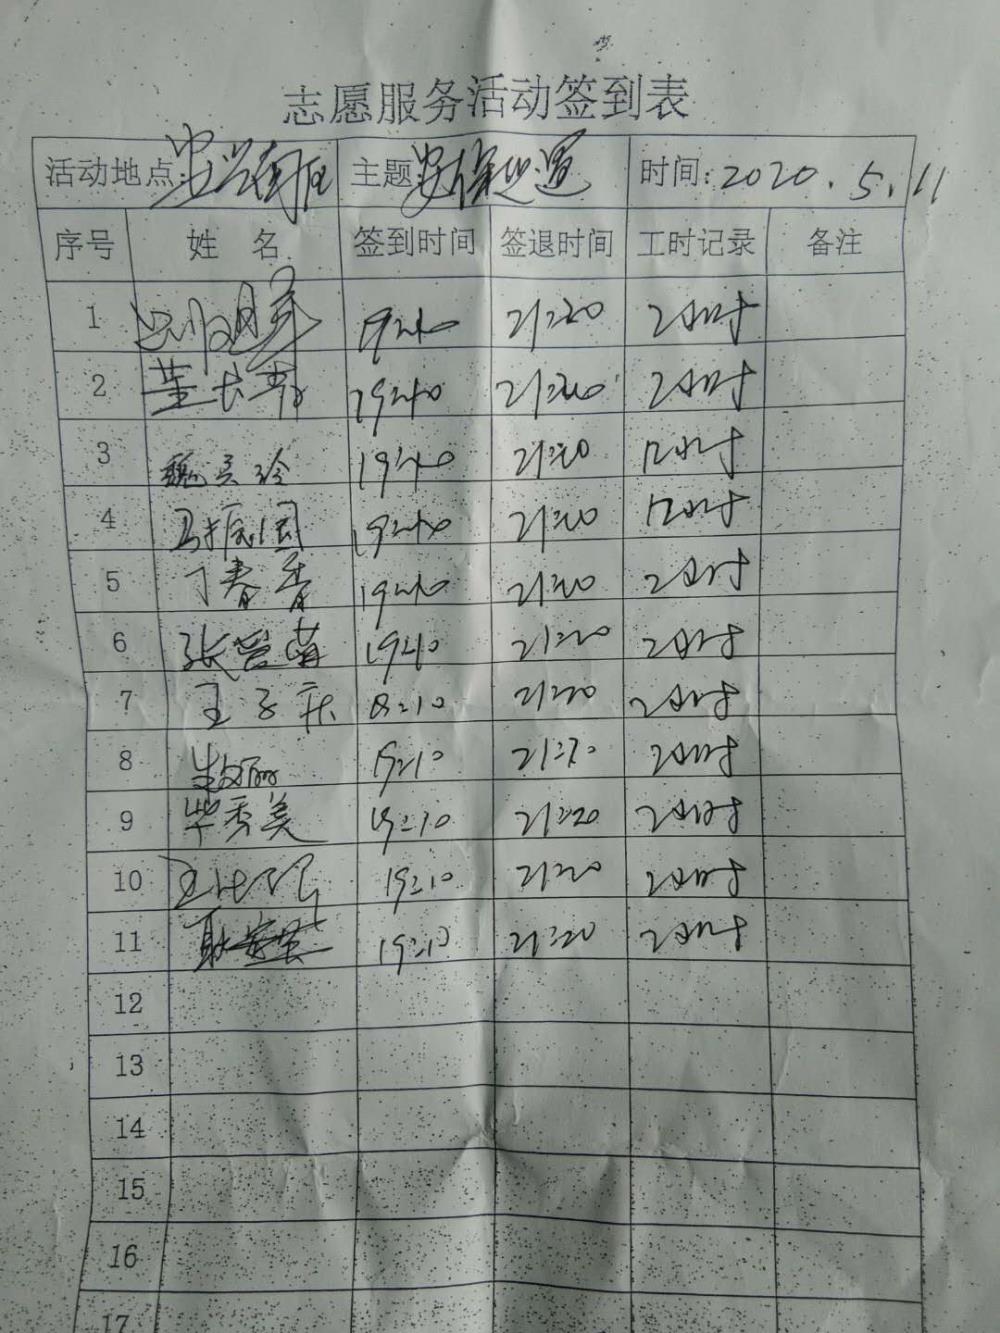 志愿服务活动签到表
活动地点: 主题: 安保巡逻 时间: 2020.5.11
序号 姓名 签到时间 签退时间 工时记录 备注
1 19:40 21:20 2小时
2 董长 19:40 21:20 2小时
3 魏 玲 19:40 21:20 小时
4 马振国 19:40 21:20 小时
5 丁春香 19:40 21:20 2小时
6 张 19:40 21:20 2小时
7 王子 8:10 21:20 2小时
8 丽 19:10 21:20 2小时
9 毕秀美 19:10 21:20 2小时
10 王 19:10 21:20 2小时
11 耿 19:10 21:20 2小时
12
13
14
15
16
17